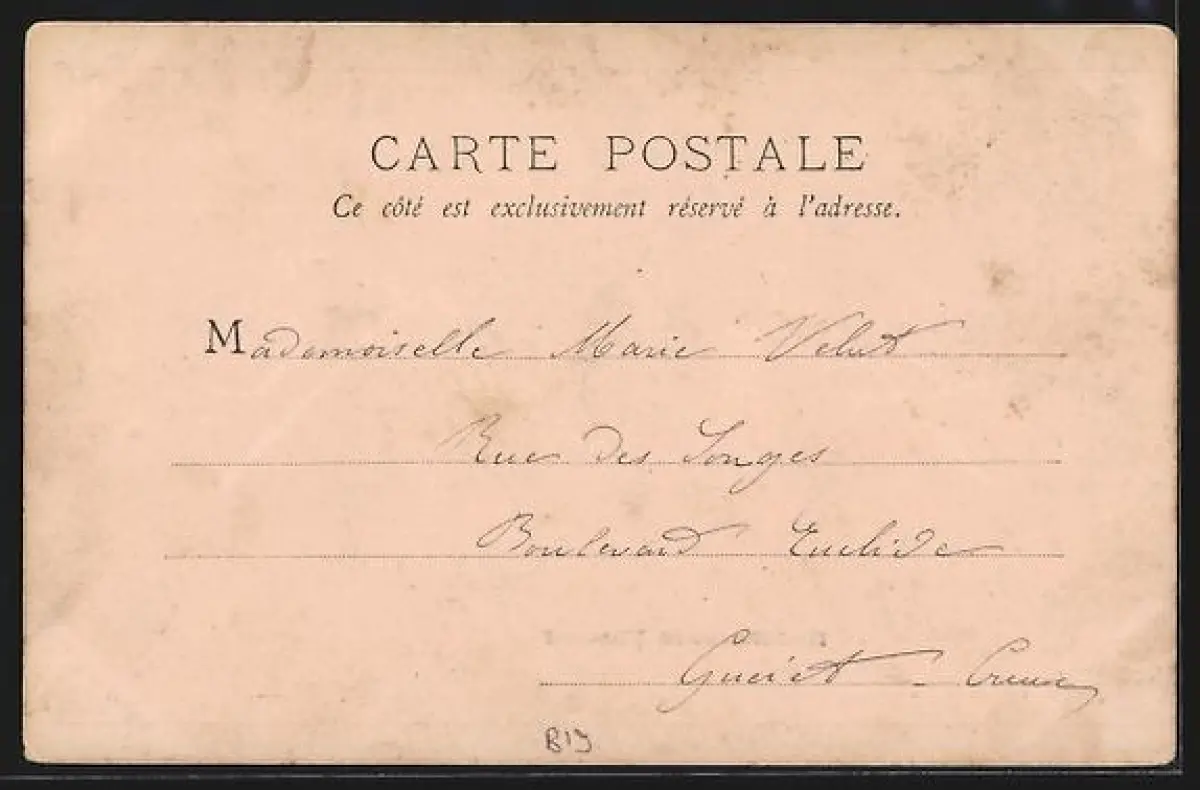 CARTE POSTALE
Ce côté est exclusivement réservé à l'adresse.
Mademoiselle Marie Velut
Rue des Songes
Boulevard Euclide
Guéret - Creuse
B19